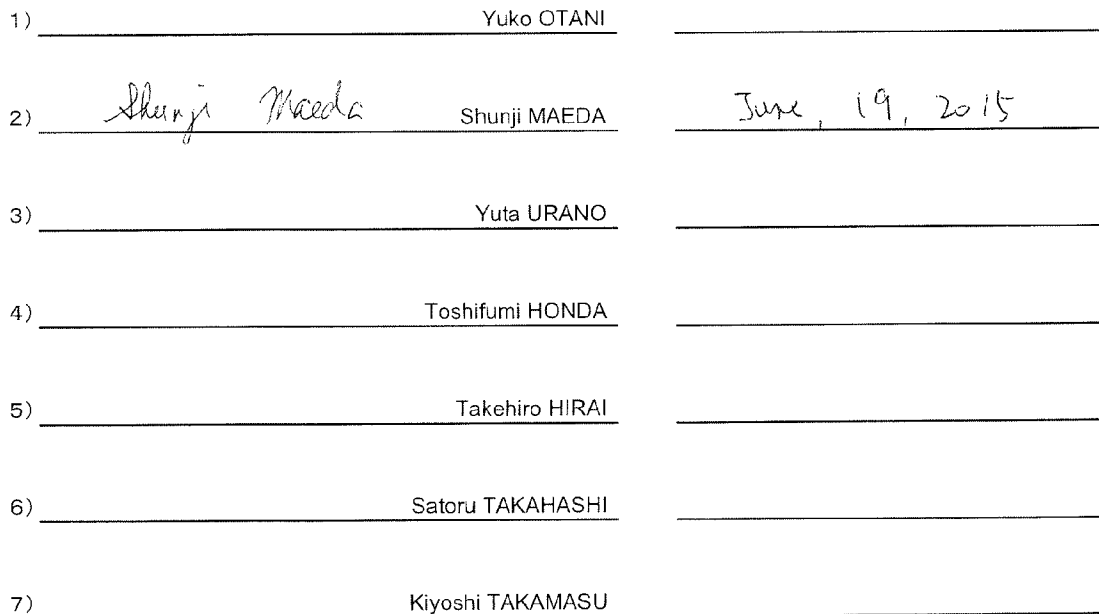 1) Yuko OTANI
2) Shunji Maeda Shunji MAEDA June, 19, 2015
3) Yuta URANO
4) Toshifumi HONDA
5) Takehiro HIRAI
6) Satoru TAKAHASHI
7) Kiyoshi TAKAMASU